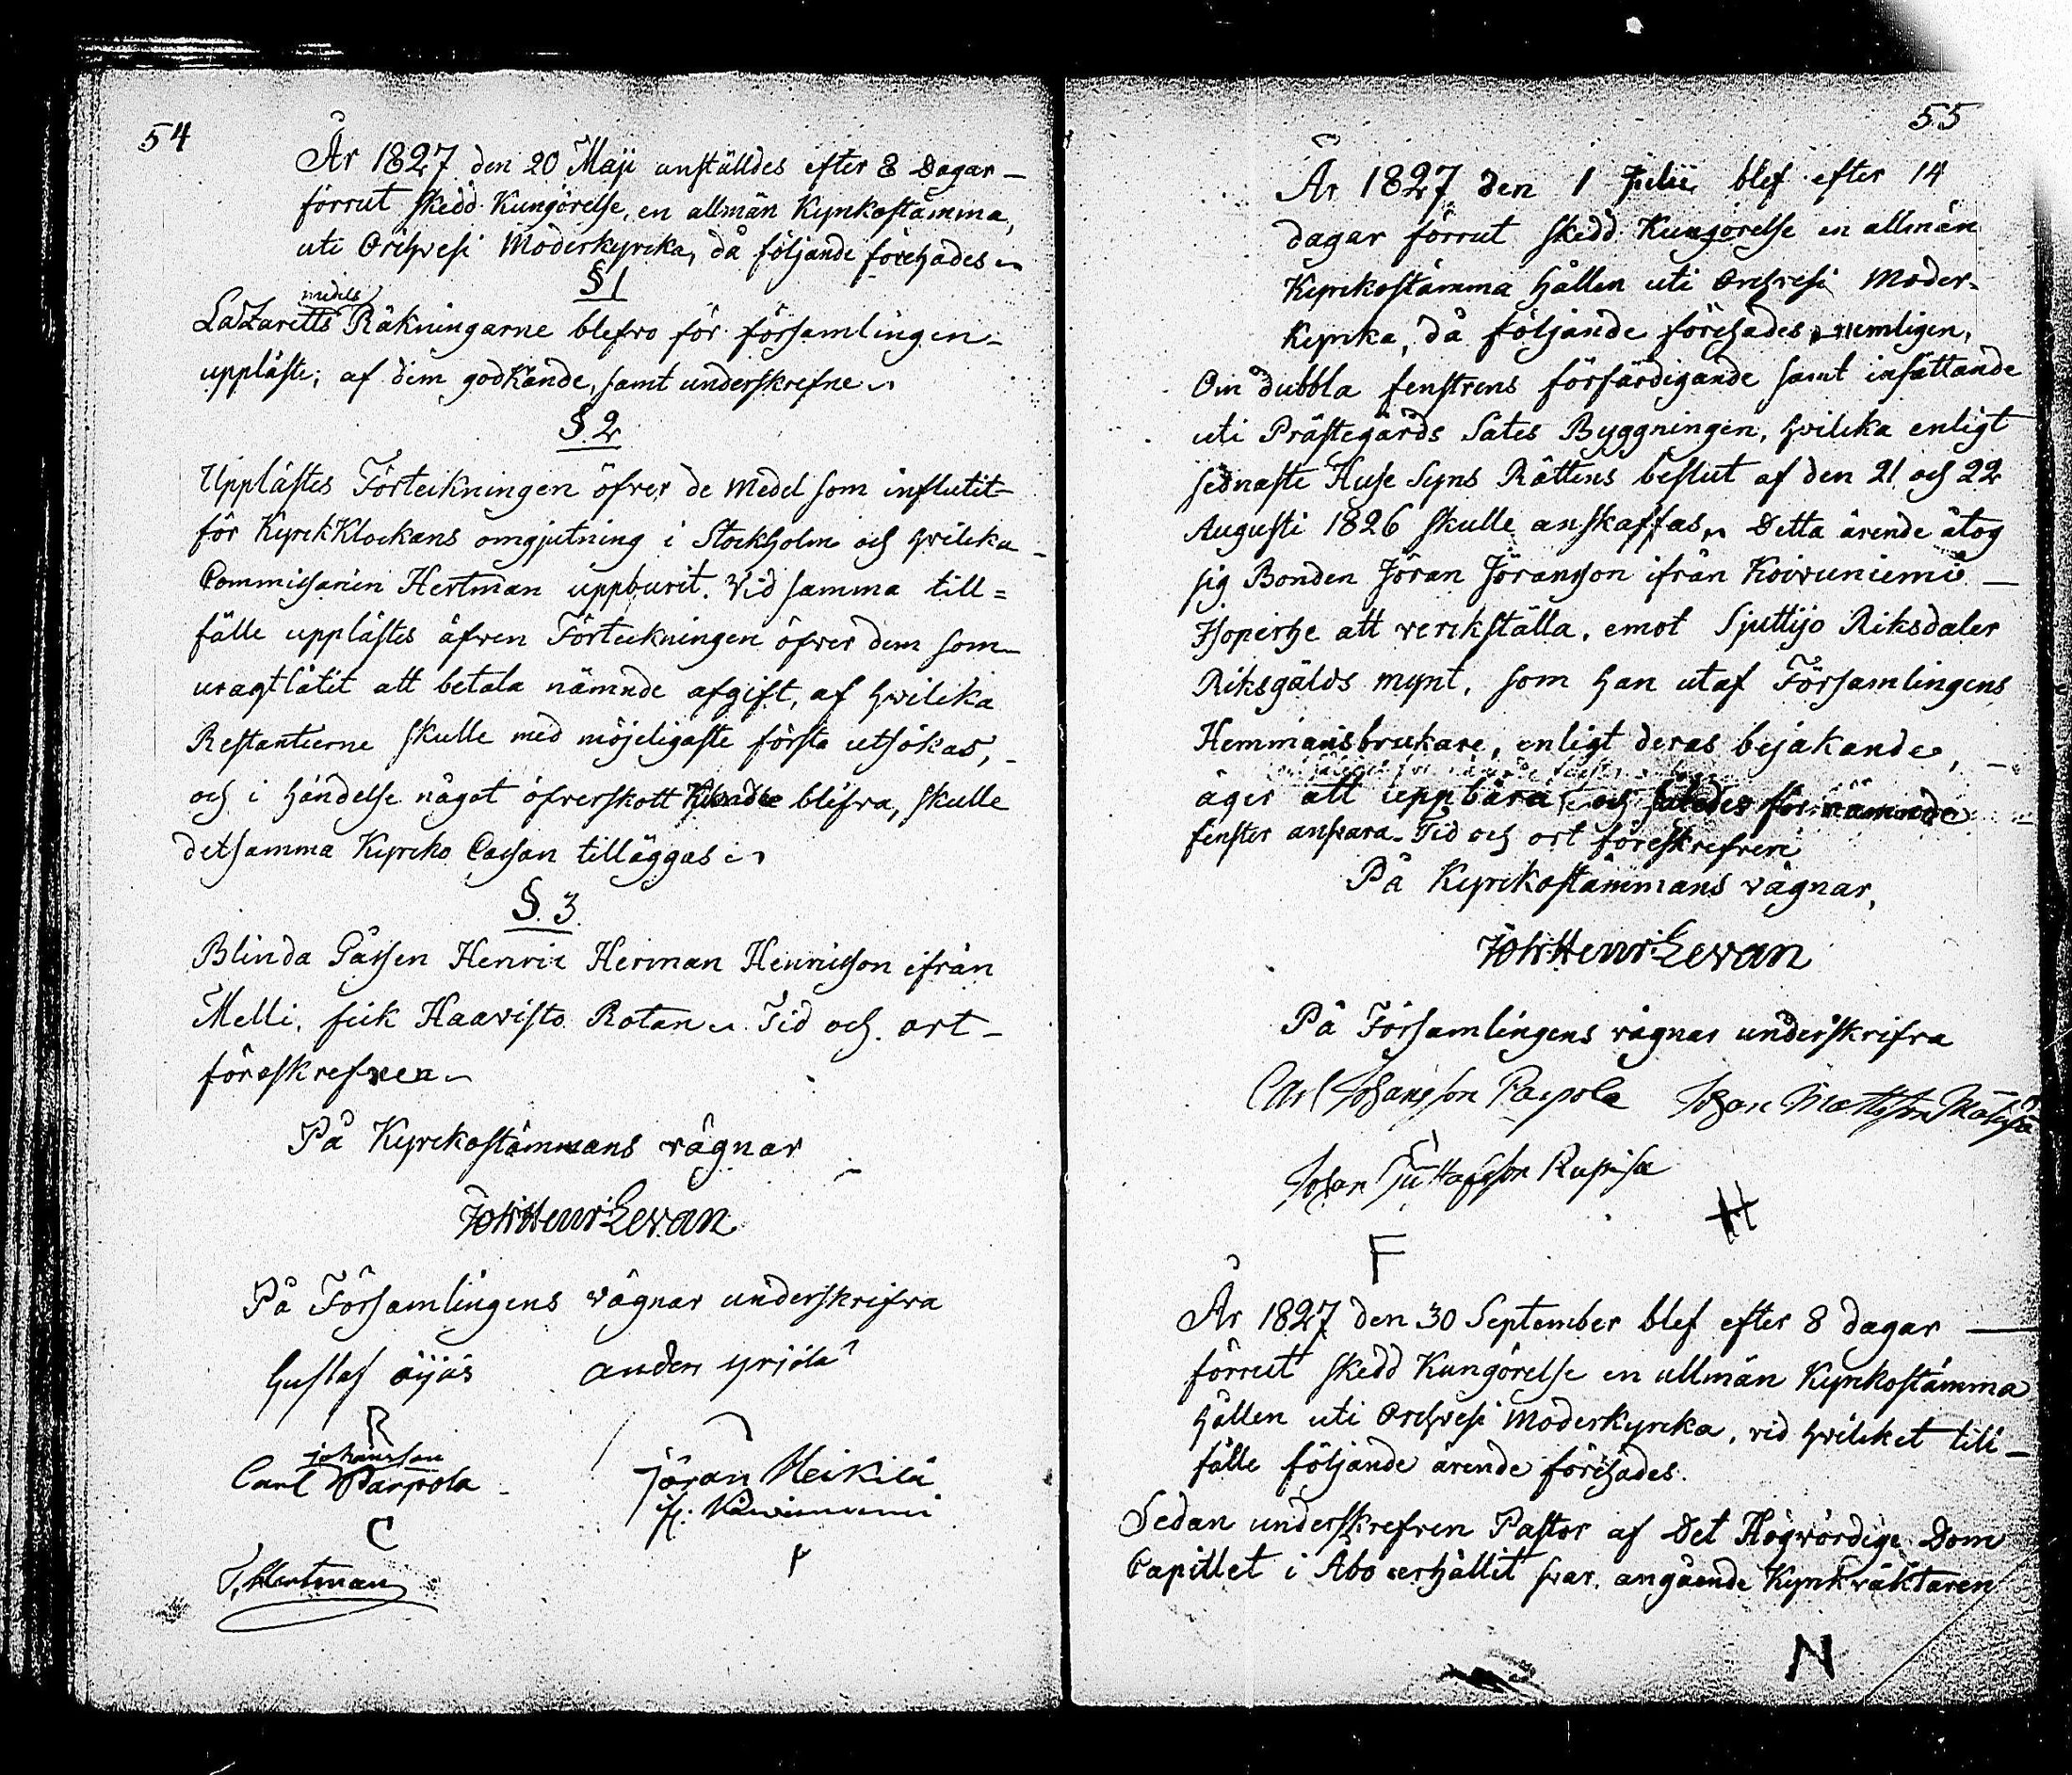 54
År 1827 den 20 Maji anställdes efter 8 Dagar
förrut skedd Kungörelse, en allmän Kyrkostämma,
uti Orihvesi Moderkyrcka, då följande förehades
§ 1
medels
Lazaretts Räkningarne blefvo för församlingen
uppläste; af dem godkände, samt underskrefne
§. 2
Upplästes Förteckningen öfver de medel som influtit
för KyrckKlockans omgjutning i Stockholm och hvilcka
Commissarien Hertman uppburit. Vid samma till=
fälle upplästes äfven Förteckningen öfver dem som
uragtlåtit att betala nämnde afgift, af hvilcka
Restantierne skulle med möjeligaste första utsökas,
och i händelse något öfverskott blifva, skulle
detsamma Kyrcko Cassan tilläggas
§. 3
Blinda Gåssen Henric Herman Henricsson ifrån
Melli, fick Haavisto Rotan. Tid och ort
föreskrefven
På Kyrckostämmans vägnar
Joh: Henr: Levan
På Församlingens vägnar underskrifva
Gustaf äijäs anders yrjölä
R
johansson
Carl Parpola
Jöran Heikilä
C
T. Hertman
55
År 1827 den 1 Julii blef efter 14
dagar förrut skedd Kungörelse en allmän
Kyrckostämma hållen uti Orihvesi Moder-
Kyrcka, då följande förehades, nemligen,
Om dubbla fenstrens förfärdigande samt insättande
uti Prästegårds Sätes Byggningen, hvilcka enligt
sednaste Huse Syns Rättens beslut af den 21 och 22
Augusti 1826 skulle anskaffas. Detta ärende åtog
sig Bonden Jöran Jöransson ifrån Koivuniemi
Hoperhe att verckställa, emot Sjuttijo Riksdaler
Riksgälds mynt, som han utaf Församlingens
Hemmansbrukare, enligt deras bejakande,
äger att uppbära och således för nämnde
fenster ansvara. Tid och ort föreskrefven
På Kyrckostämmans vägnar,
Joh: Henr: Levan
På Församlingens vägnar underskrifva
Carl Johansson Parpola Johan Mattsson
Johan Gustafsson Rupisa
H
F
År 1827 den 30 September blef efter 8 dagar
förrut skedd Kungörelse en allmän Kyrkostämma
hållen uti Orihvesi Moderkyrcka, vid hvilcket till
fälle följande ärende förehades.
Sedan underskrefven Pastor af Det Högvördige Dom
Capitlet i Åbo erhållit svar angående Kyrkväktaren
N